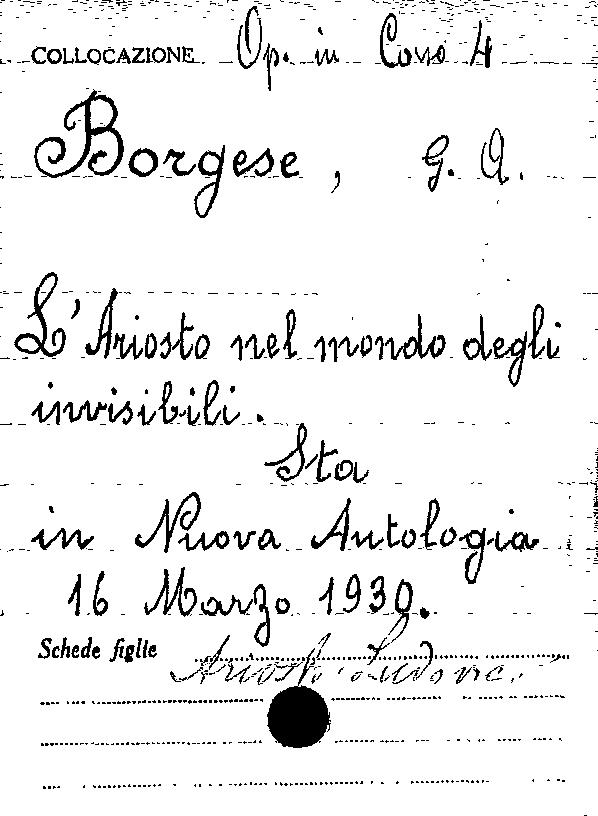 COLLOCAZIONE Op. in Corso 4
Borgese, G. A.
L'Ariosto nel mondo degli
invisibili.
Sta
in Nuova Antologia
16 Marzo 1930.
Schede figlie
Ariosto Ludovic.